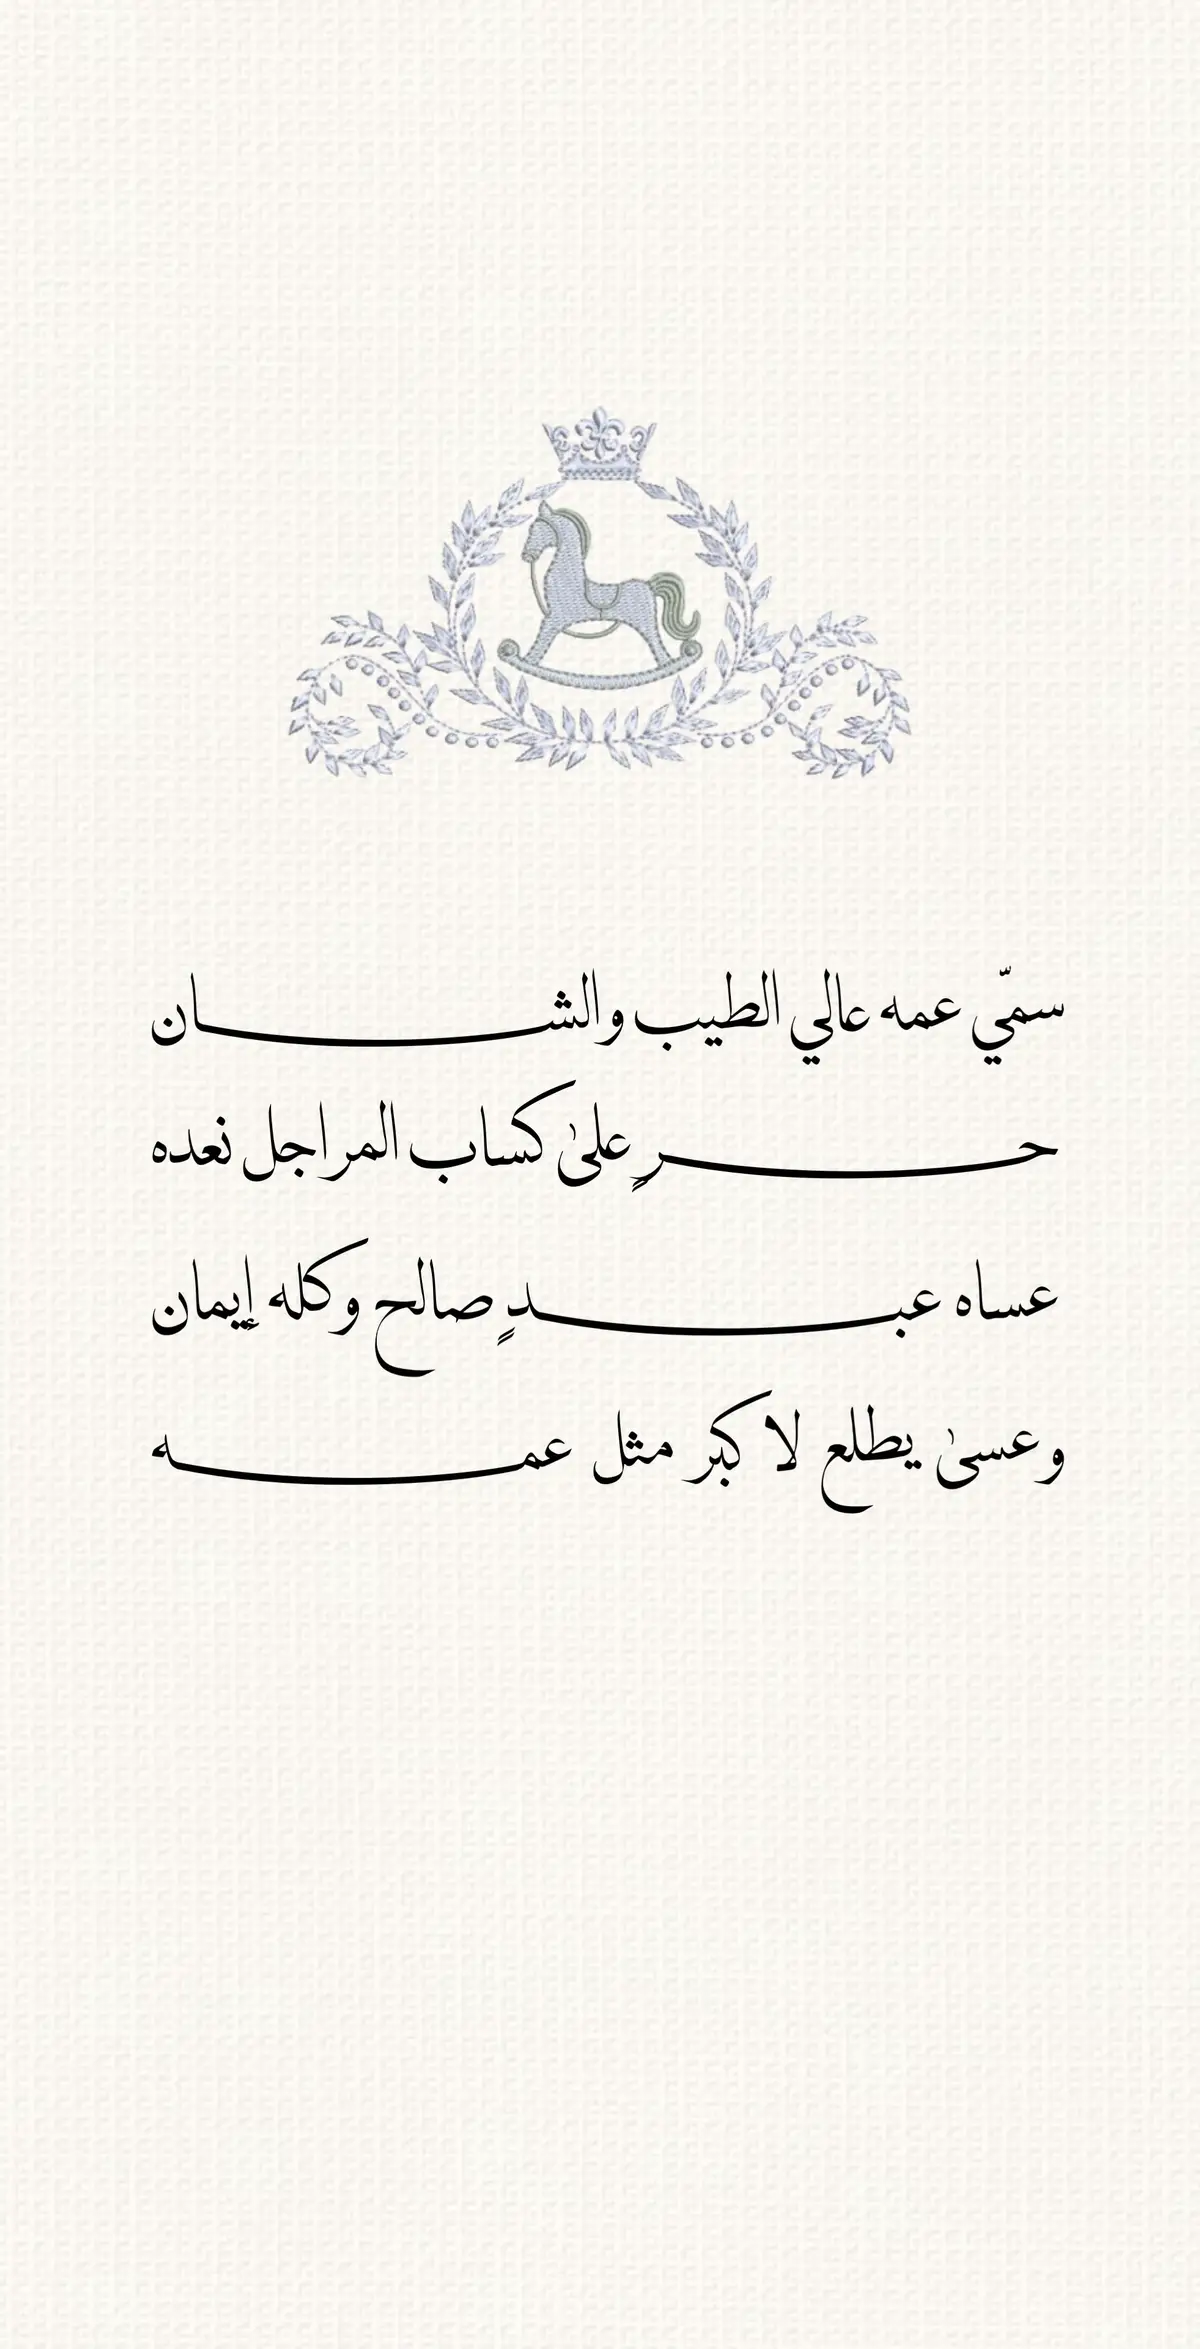 سمّي عمه عالي الطيب والشـــان
حـــرٍ علىٰ كساب المراجل نعده
عساه عبـــدٍ صالح وكله إيمان
وعسىٰ يطلع لا كبر مثل عمـــه